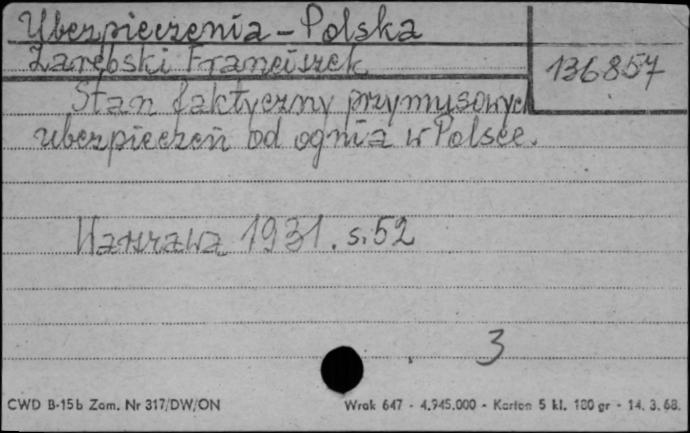 Ubezpieczenia - Polska
Zarębski Franciszek
136857
Stan faktyczny przymusowych
ubezpieczeń od ognia w Polsce.
Warszawa 1931. s. 52
3
CWD B-15b Zam. Nr 317/DW/ON
Wrak 647 - 4.945.000 - Karton 5 kl. 180 gr - 14. 3. 68.